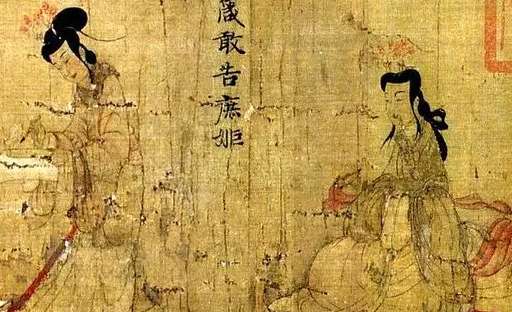 箴敢告庶姬